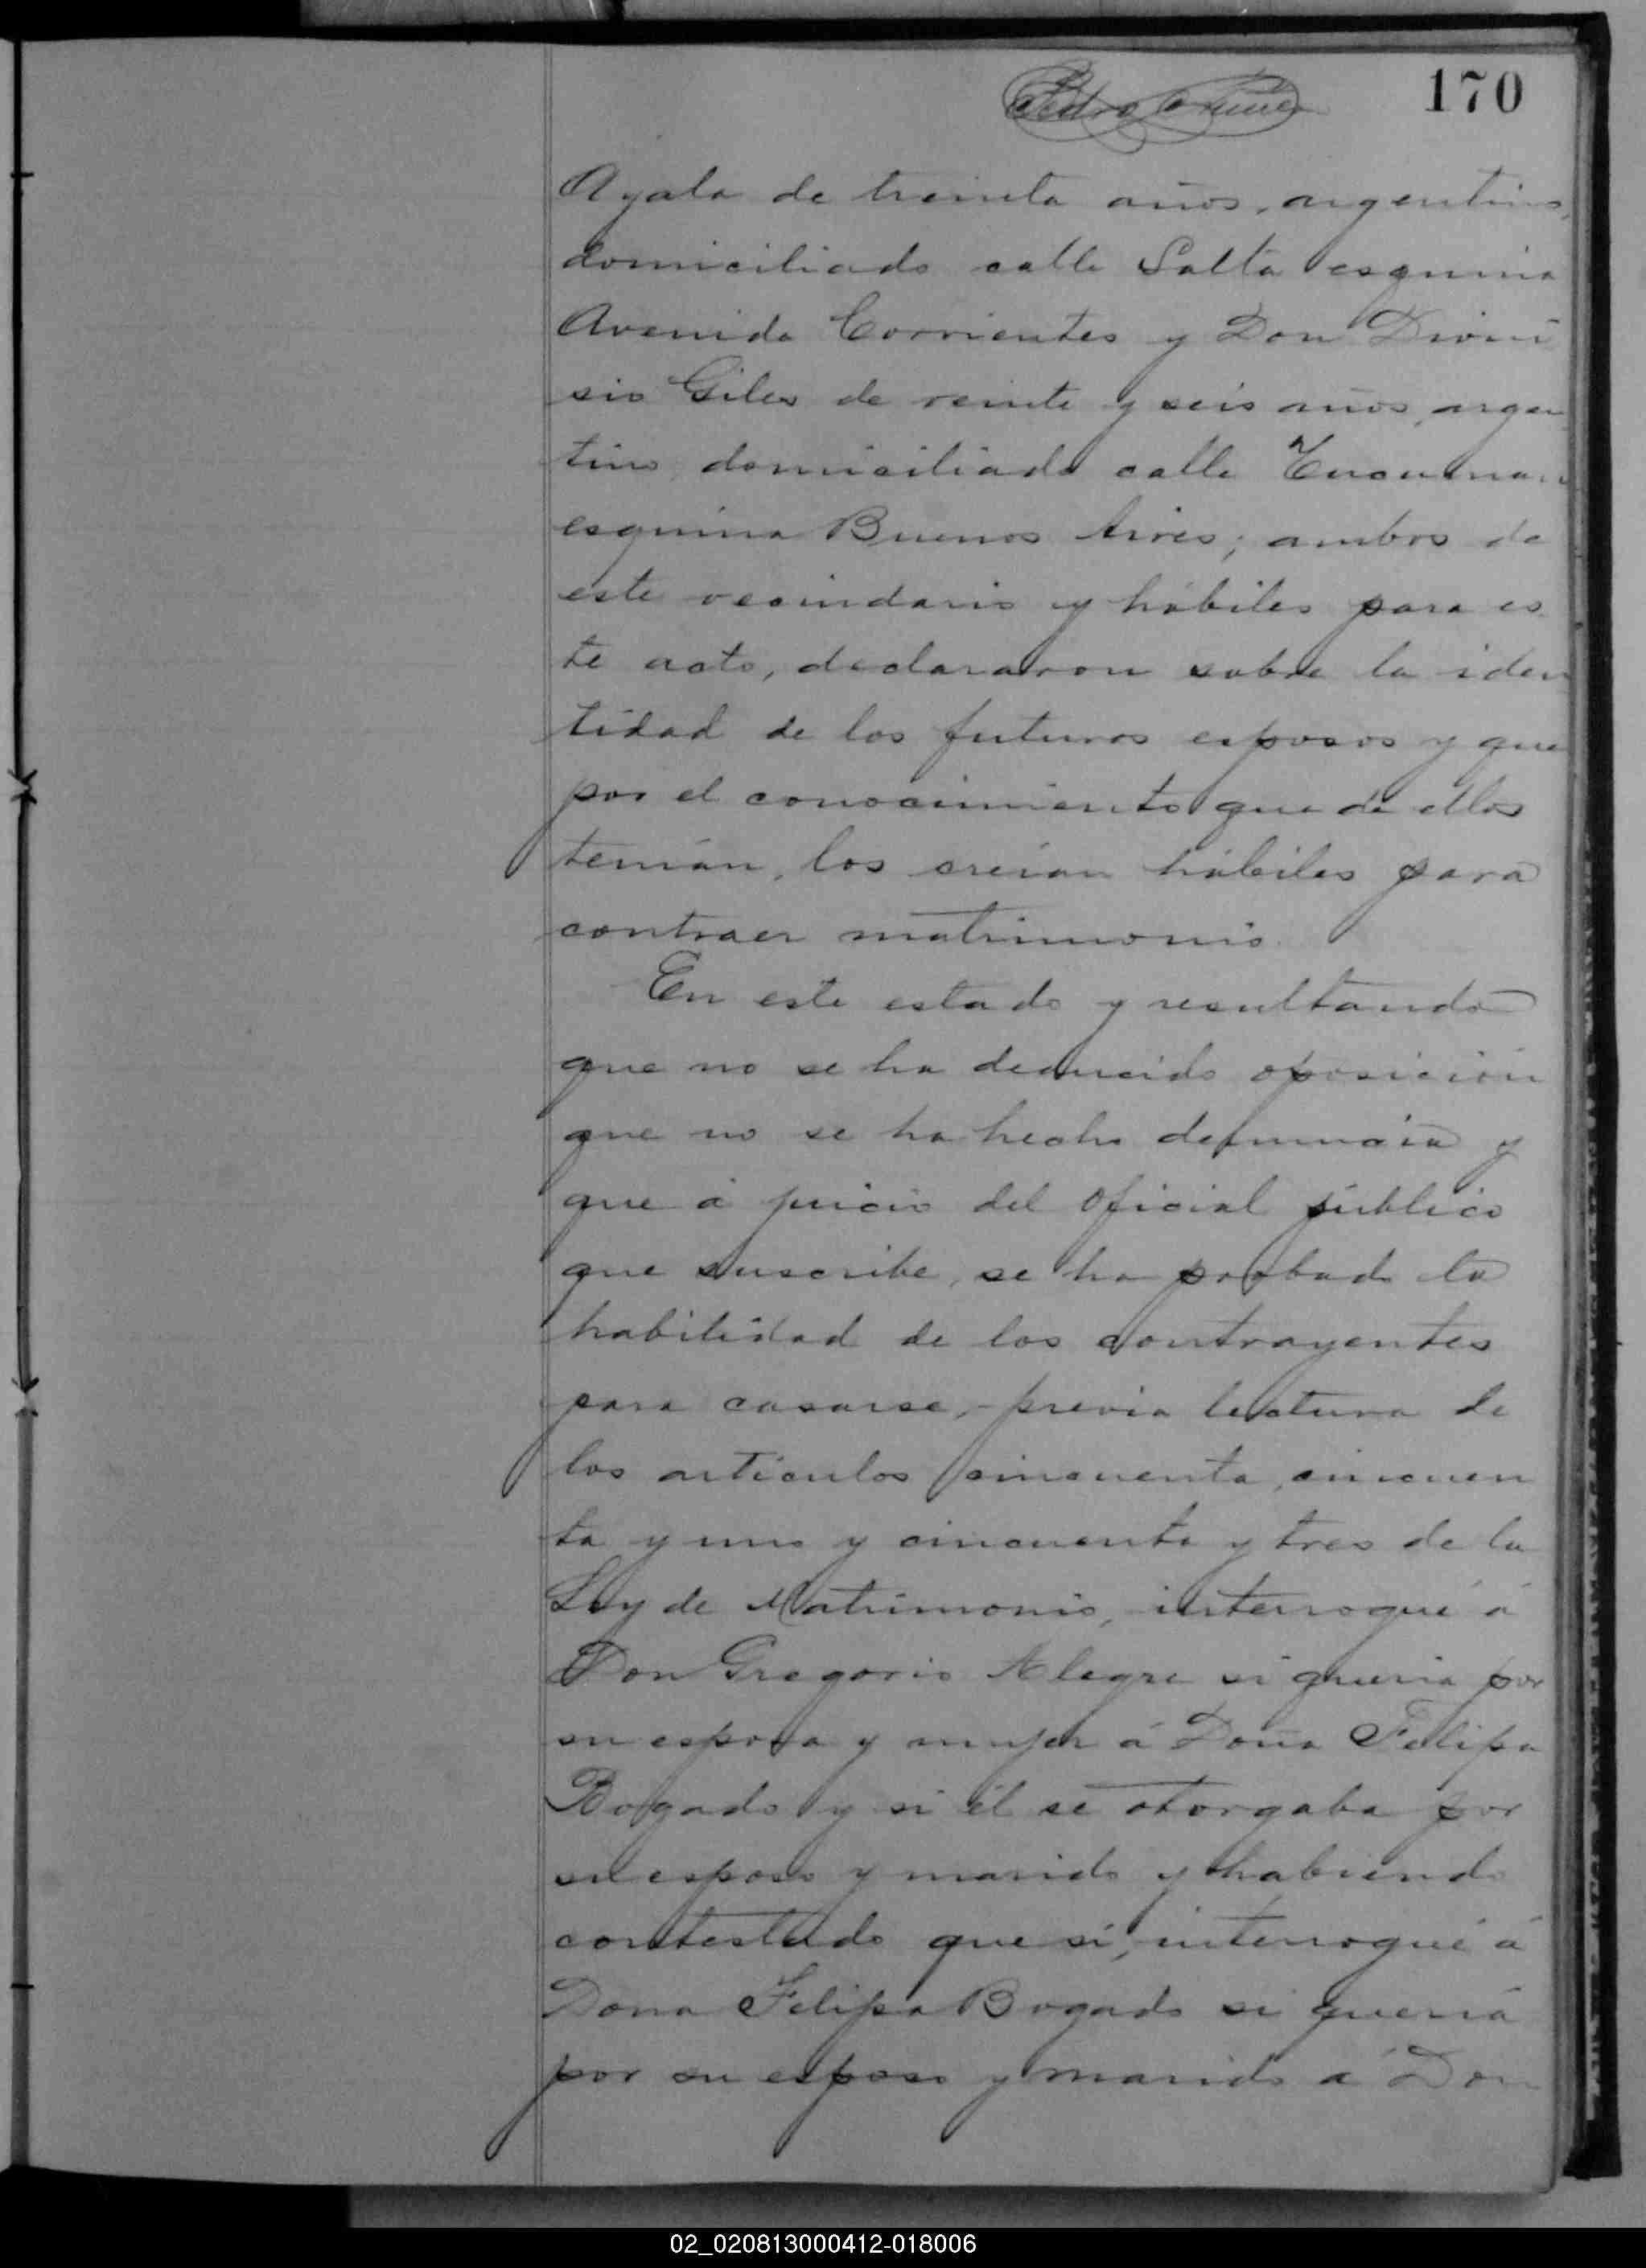 170
Pedro
Ayala de treinta años, argentino,
domiciliado calle Salta esquina
Avenida Corrientes y Don Dioni
sio Giles de veinte y seis años, argen
tino, domiciliado calle Tucuman
esquina Buenos Aires; ambos de
este vecindario y hábiles para es
te acto, declararon sobre la iden
tidad de los futuros esposos y que
por el conocimiento que de ellos
tenían, los creían hábiles para
contraer matrimonio.
En este estado y resultando
que no se ha deducido oposición
que no se ha hecho denuncia y
que á juicio del Oficial público
que suscribe, se ha probado la
habilidad de los contrayentes
para casarse, previa lectura de
los artículos cincuenta, cincuen
ta y uno y cincuenta y tres de la
Ley de Matrimonio, interrogué á
Don Gregorio Alegre si queria por
su esposa y mujer á Doña Felipa
Bogado y si él se otorgaba por
su esposo y marido y habiendo
contestado que sí, interrogué á
Dona Felipa Bogado si queria
por su esposo y marido á Don
02_020813000412-018006